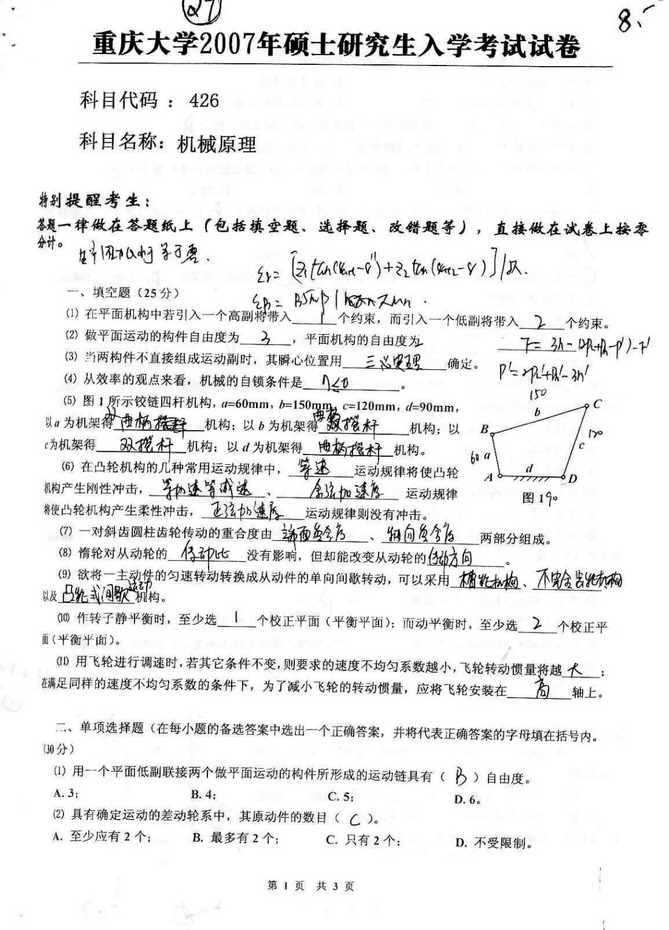 27
8.
重庆大学2007年硕士研究生入学考试试卷
科目代码 ： 426
科目名称：机械原理
特别提醒考生：
答题一律做在答题纸上（包括填空题、选择题、改错题等），直接做在试卷上按零
分计。
一、填空题（25分）
⑴ 在平面机构中若引入一个高副将带入 1 个约束，而引入一个低副将带入 2 个约束。
⑵ 做平面运动的构件自由度为 3 ，平面机构的自由度为
⑶ 当两构件不直接组成运动副时，其瞬心位置用 三心定理 确定。
⑷ 从效率的观点来看，机械的自锁条件是 η≤0 。
⑸ 图1所示铰链四杆机构，a=60mm，b=150mm，c=120mm，d=90mm，
以a为机架得 双曲柄 机构；以b为机架得 机构；以
c为机架得 双摇杆 机构；以d为机架得 曲柄摇杆 机构。
B b 150 C
60 a c 120
A d D
图1 90
⑹ 在凸轮机构的几种常用运动规律中， 等速 运动规律将使凸轮
机构产生刚性冲击， 等加速等减速 、 余弦加速度 运动规律
将使凸轮机构产生柔性冲击， 正弦加速度 运动规律则没有冲击。
⑺ 一对斜齿圆柱齿轮传动的重合度由 端面重合度 、 轴向重合度 两部分组成。
⑻ 惰轮对从动轮的 传动比 没有影响，但却能改变从动轮的 传动方向 。
⑼ 欲将一主动件的匀速转动转换成从动件的单向间歇转动，可以采用 槽轮机构 、 不完全齿轮机构
以及 凸轮式间歇运动 机构。
⑽ 作转子静平衡时，至少选 1 个校正平面（平衡平面）；而动平衡时，至少选 2 个校正平
面（平衡平面）。
⑾ 用飞轮进行调速时，若其它条件不变，则要求的速度不均匀系数越小，飞轮转动惯量将越 大 ；
在满足同样的速度不均匀系数的条件下，为了减小飞轮的转动惯量，应将飞轮安装在 高 轴上。
二、单项选择题（在每小题的备选答案中选出一个正确答案，并将代表正确答案的字母填在括号内。
（30分）
⑴ 用一个平面低副联接两个做平面运动的构件所形成的运动链具有（ B ）自由度。
A. 3； B. 4； C. 5； D. 6。
⑵ 具有确定运动的差动轮系中，其原动件的数目（ C ）。
A. 至少应有2个； B. 最多有2个； C. 只有2个； D. 不受限制。
第 1 页 共 3 页